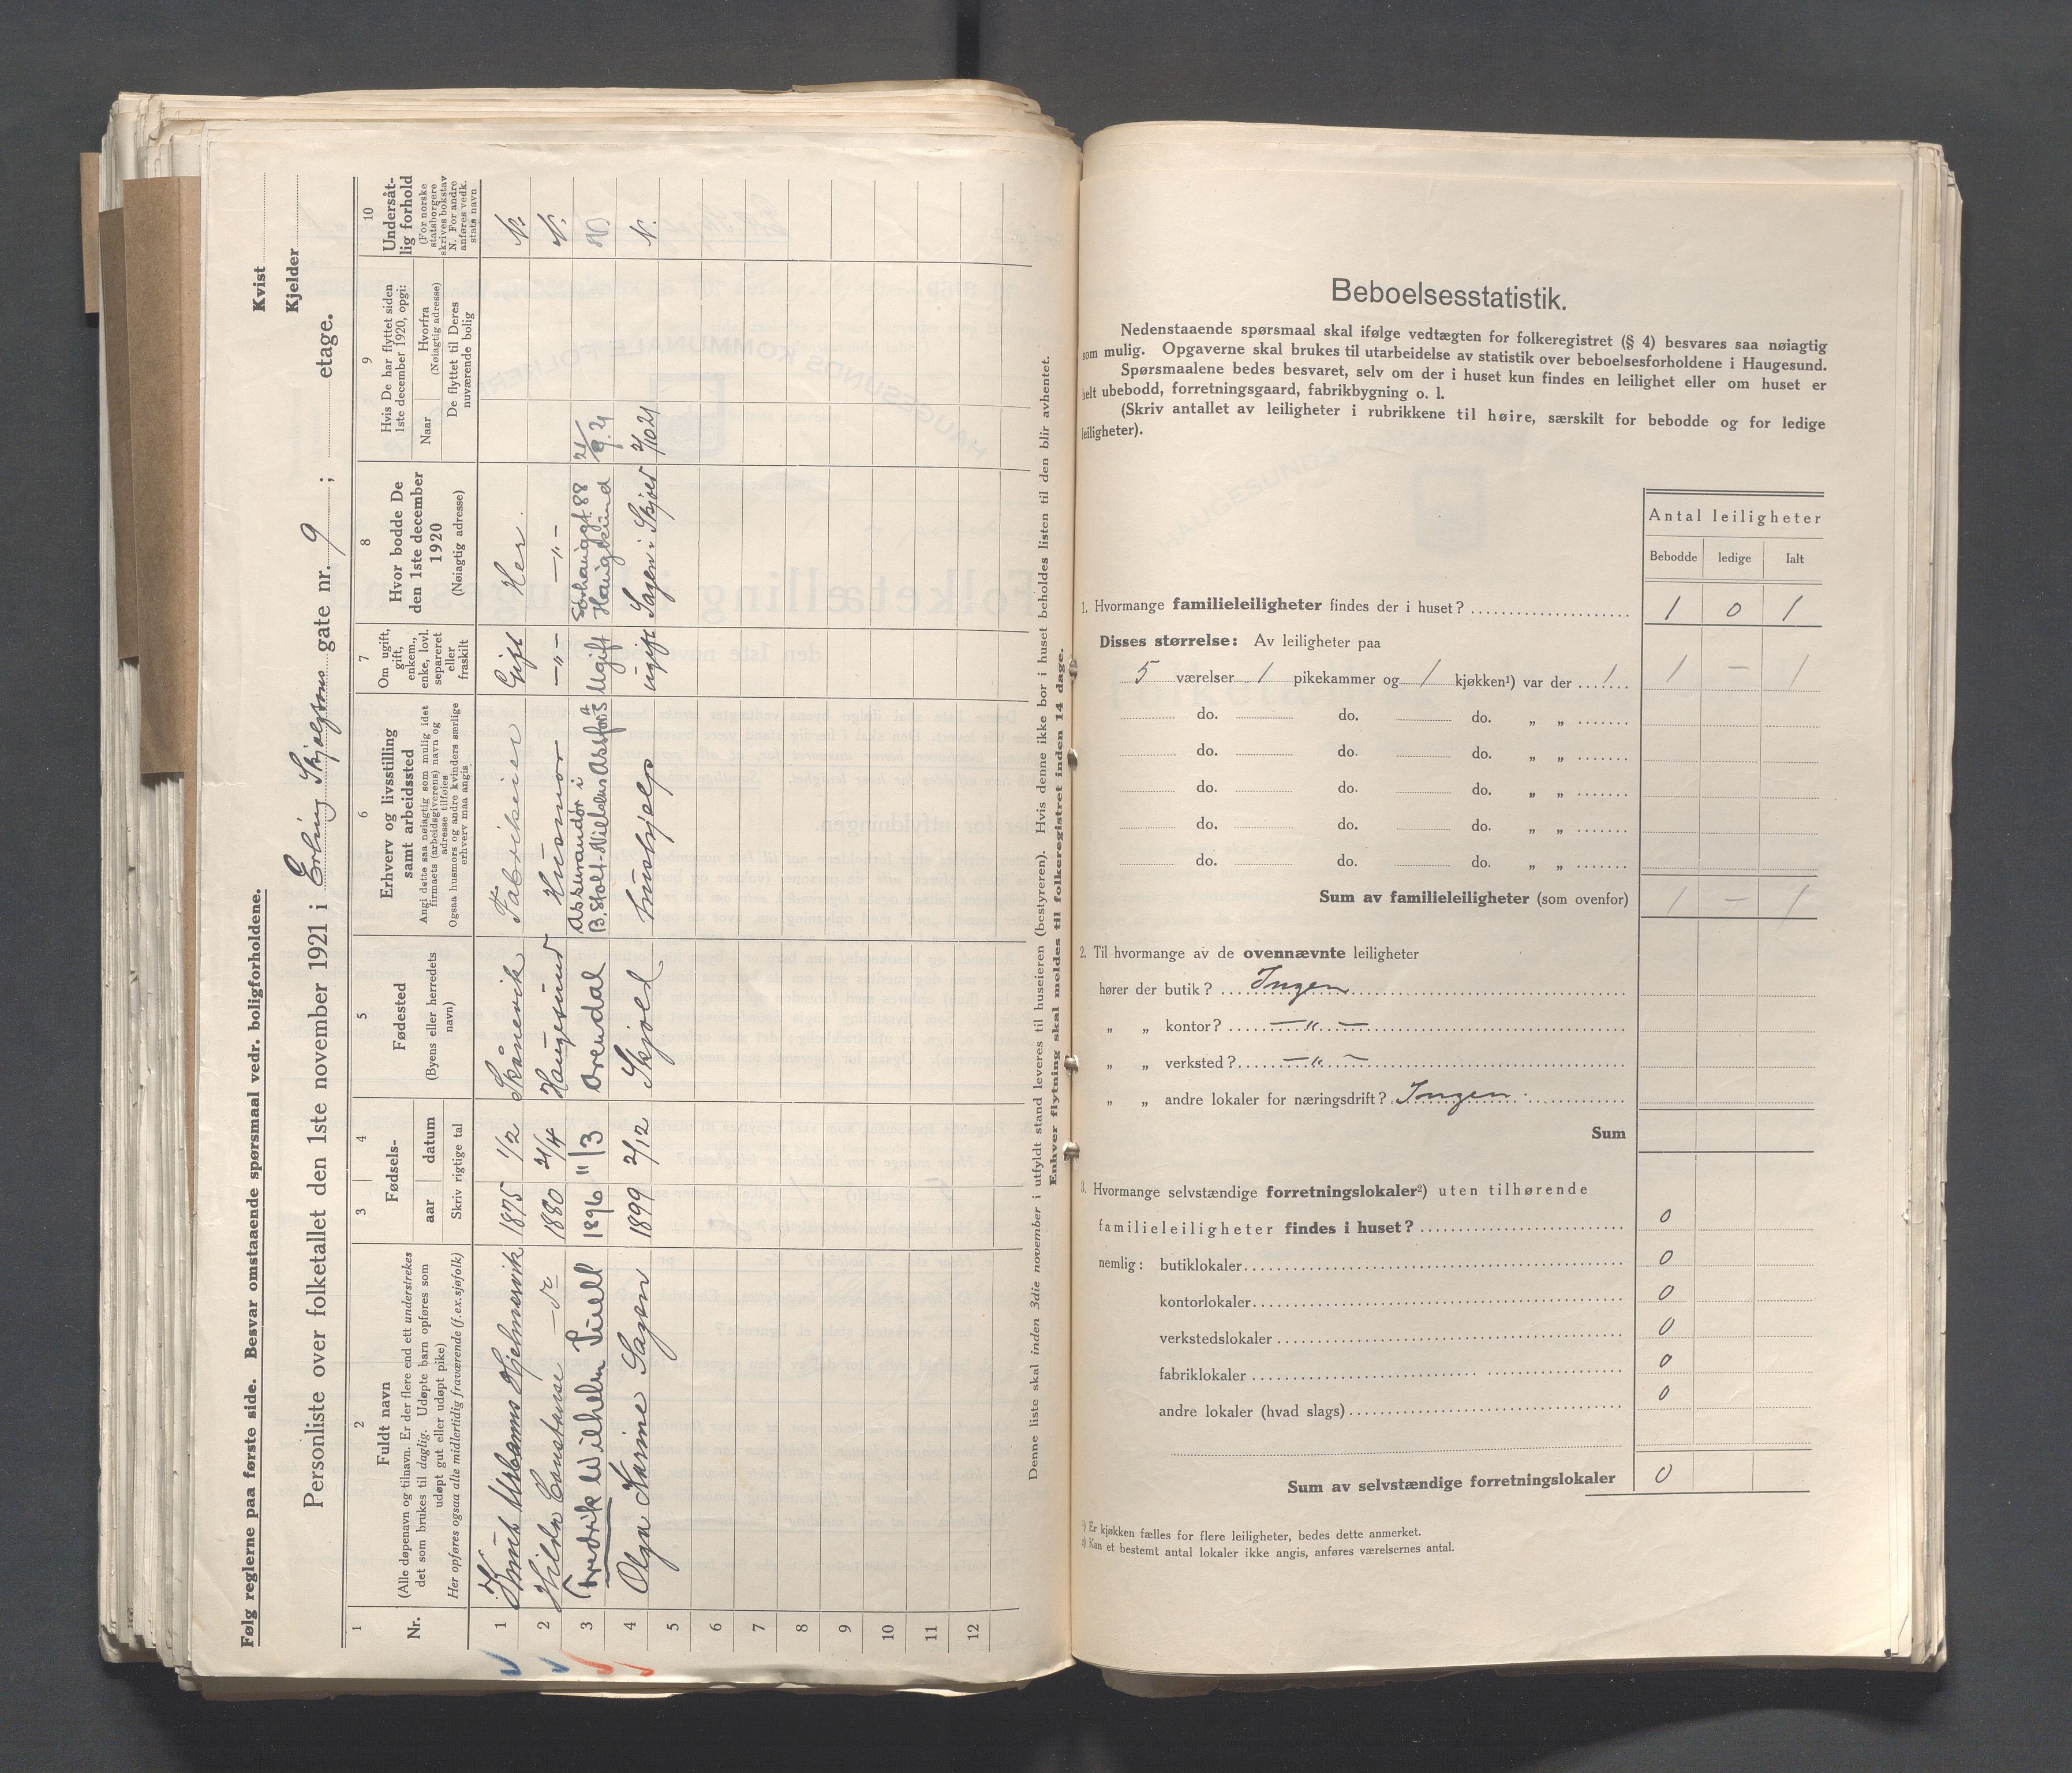 Følg reglerne paa første side. Besvar omstaaende spørsmaal vedr. boligforholdene.
Kvist
Kjelder
Personliste over folketallet den 1ste november 1921 i Erling Skjalgsons gate nr. 9 ; etage.
1 2 3 4 5 6 7 8 9 10
Nr.
Fuldt navn
(Alle døpenavn og tilnavn. Er der flere end ett understrekes
det som brukes til daglig. Udøpte barn opføres som
udøpt gut eller udøpt pike)
Her opføres ogsaa alle midlertidig fraværende (f. ex. sjøfolk)
Fødsels-
aar datum
Skriv rigtige tal
Fødested
(Byens eller herredets
navn)
Erhverv og livsstilling
samt arbeidssted
Angi dette saa nøiagtig som mulig idet
firmaets (arbeidsgiverens) navn og
adresse tilføies
Ogsaa husmors og andre kvinders særlige
erhverv maa angis
Om ugift,
gift,
enkem.,
enke, lovl.
separeret
eller
fraskilt
Hvor bodde De
den 1ste december
1920
(Nøiagtig adresse)
Hvis De har flyttet siden
1ste december 1920, opgi:
Naar
Hvorfra
(Nøiagtig adresse)
De flyttet til Deres
nuværende bolig
Undersåt-
lig forhold
(For norske
statsborgere
skrives bokstav
N. For andre
anføres vedk.
stats navn
1 Knut Urbanus Hjelmervik 1875 1/2 Skånevik Fabrikeier Gift Her. N.
2 Hilda Constanse -do- 1880 21/4 Haugesund Husmor -"- -"- N.
3 Fredrik Wilhelm Tiell 1896 11/3 Arendal Assurandør i
B. Stolt-Nielsens Assfors A/S Ugift Sørhauggt. 88
Haugesund 21/9.21 N
4 Olga Karine Sagen 1899 2/12 Skjold hushjelp ugift Sagen i Skjold 2/10 21 N.
5
6
7
8
9
10
11
12
Denne liste skal inden 3die november i utfyldt stand leveres til huseieren (bestyreren). Hvis denne ikke bor i huset beholdes listen til den blir avhentet.
Enhver flytning skal meldes til folkeregistret inden 14 dage.
Beboelsesstatistik.
Nedenstaaende spørsmaal skal ifølge vedtægten for folkeregistret (§ 4) besvares saa nøiagtig
som mulig. Opgaverne skal brukes til utarbeidelse av statistik over beboelsesforholdene i Haugesund.
Spørsmaalene bedes besvaret, selv om der i huset kun findes en leilighet eller om huset er
helt ubebodd, forretningsgaard, fabrikbygning o. l.
(Skriv antallet av leiligheter i rubrikkene til høire, særskilt for bebodde og for ledige
leiligheter).
Antal leiligheter
Bebodde ledige Ialt
1. Hvormange familieleiligheter findes der i huset? 1 0 1
Disses størrelse: Av leiligheter paa
5 værelser 1 pikekammer og 1 kjøkken¹) var der 1 1 – 1
do. do. do. „ „
do. do. do. „ „
do. do. do. „ „
do. do. do. „ „
do. do. do. „ „
Sum av familieleiligheter (som ovenfor) 1 – 1
2. Til hvormange av de ovennævnte leiligheter
hører der butik? Ingen
„ „ kontor? —"—
„ „ verksted? —"—
„ „ andre lokaler for næringsdrift? Ingen
Sum
3. Hvormange selvstændige forretningslokaler²) uten tilhørende
familieleiligheter findes i huset? 0
nemlig: butiklokaler 0
kontorlokaler 0
verkstedslokaler 0
fabriklokaler 0
andre lokaler (hvad slags) 0
Sum av selvstændige forretningslokaler 0
¹) Er kjøkken fælles for flere leiligheter, bedes dette anmerket.
²) Kan et bestemt antal lokaler ikke angis, anføres værelsernes antal.